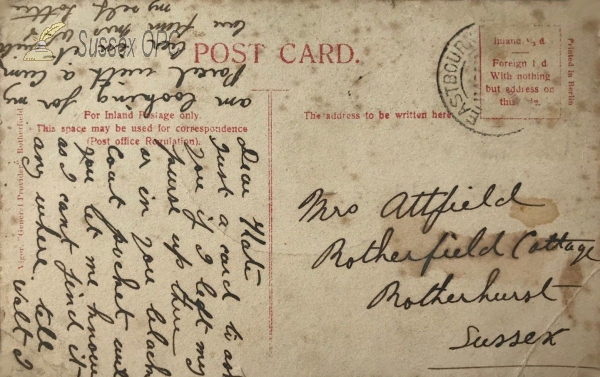 Sussex OPC
POST CARD.
Inland ½d
Foreign 1d
With nothing
but address on
this
Printed in Berlin
EASTBOURNE
For Inland Postage only
This space may be used for correspondence
(Post office Regulation).
The address to be written here
General Provider, Rotherfield
Mrs Attfield
Rotherfield Cottage
Rotherhurst
Sussex
Dear Kate
Just a card to ask
you if I left my
purse up there
or in you black
coat pocket will
you let me know
as I cant find it
any where tell
Walt I
am looking for my
Parcel with a
love from
my self Lottie